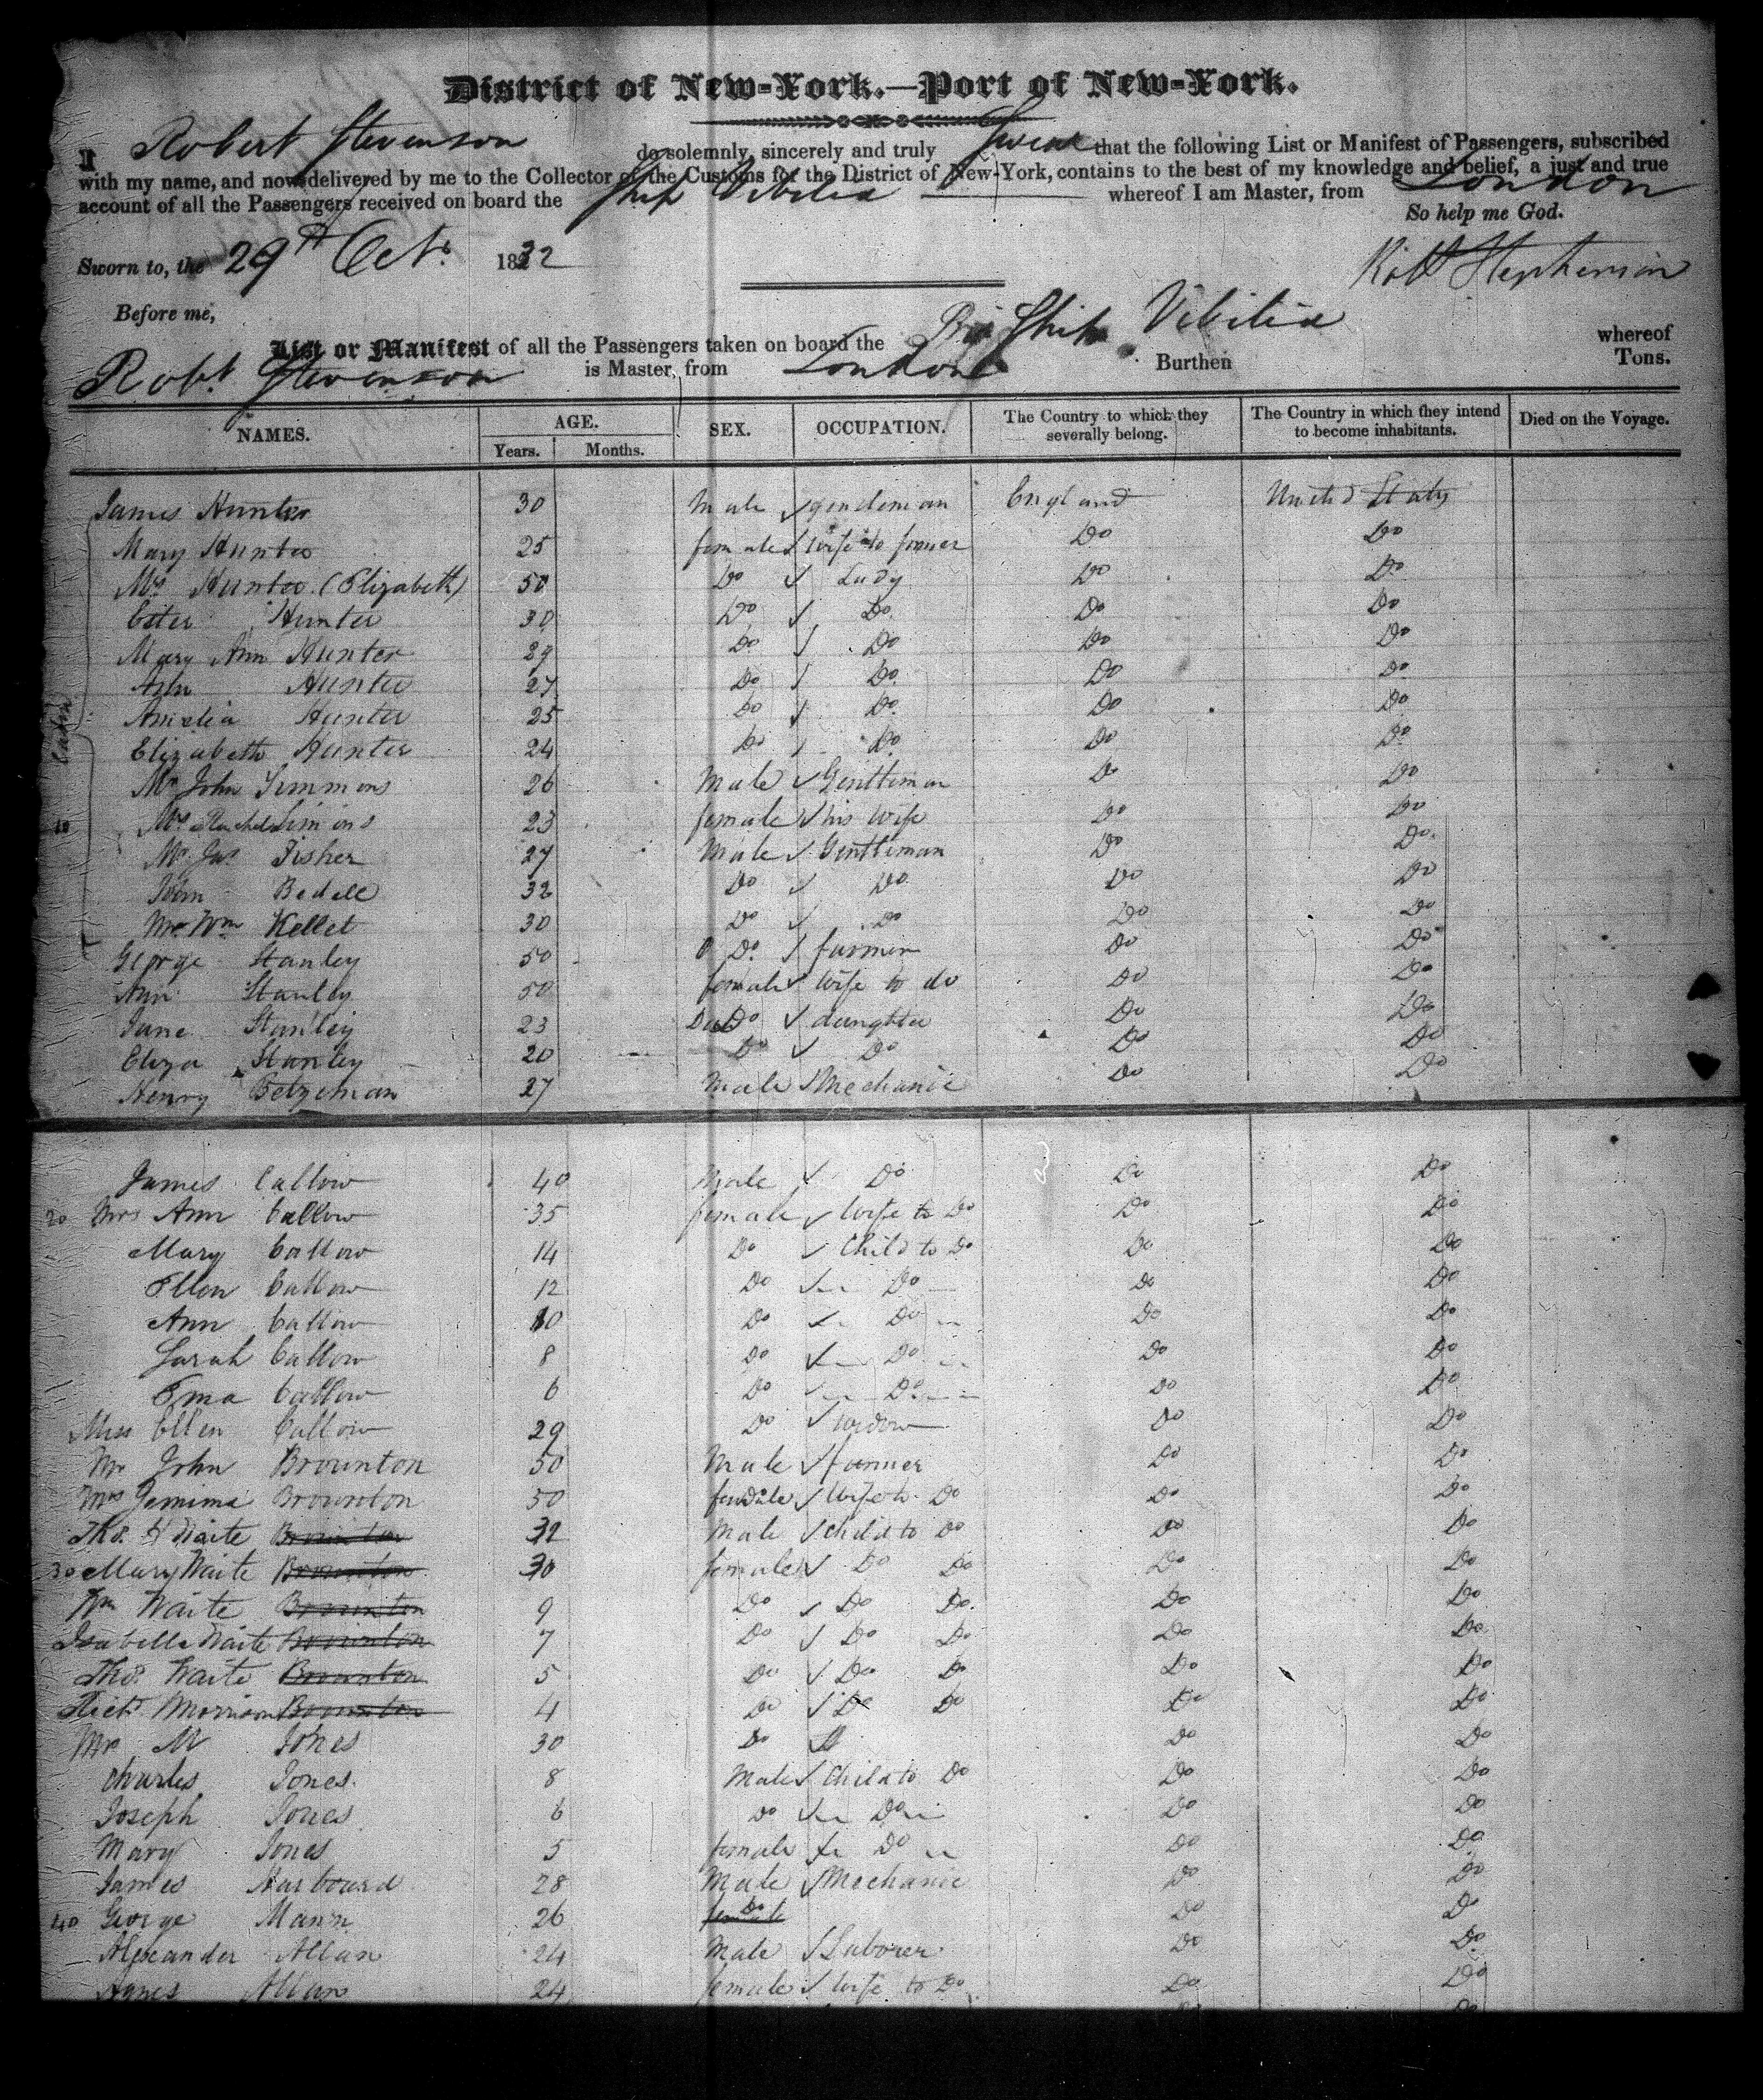 District of New-York.—Port of New-York.
I Robert Stevenson do solemnly, sincerely and truly Swear that the following List or Manifest of Passengers, subscribed
with my name, and now delivered by me to the Collector of the Customs for the District of New-York, contains to the best of my knowledge and belief, a just and true
account of all the Passengers received on board the Ship Vibilia whereof I am Master, from London
So help me God.
Sworn to, the 29th Oct. 1832
Robt Stephenson
Before me,
List or Manifest of all the Passengers taken on board the Ship Vibilia whereof
Robt Stevenson is Master, from London Burthen Tons.
NAMES. AGE. SEX. OCCUPATION. The Country to which they severally belong. The Country in which they intend to become inhabitants. Died on the Voyage.
Years. Months.
James Hunter 30 Male gentleman England United States
Mary Hunter 25 female wife to former Do Do
Mrs Hunter (Elizabeth) 50 Do Lady Do Do
Ester Hunter 30 Do Do Do Do
Mary Ann Hunter 29 Do Do Do Do
Ann Hunter 27 Do Do Do Do
Amelia Hunter 25 Do Do Do Do
Cabin
Elizabeth Hunter 24 Do Do Do Do
Mr John Simmons 26 Male Gentleman Do Do
10 Mrs Rachel Simons 23 female his wife Do Do
Mr Jas Fisher 27 Male Gentleman Do Do
John Bedell 32 Do Do Do Do
Mr Wm Kellet 30 Do Do Do Do
George Stanley 50 Do farmer Do Do
Ann Stanley 50 female wife to do Do Do
Jane Stanley 23 Do daughter Do Do
Eliza Stanley 20 Do Do Do Do
Henry Betzeman 27 Male Mechanic Do Do
James Callow 40 Male Do Do Do
20 Mrs Ann Callow 35 female Wife to Do Do Do
Mary Callow 14 Do Child to Do Do Do
Ellen Callow 12 Do Do Do Do
Ann Callow 10 Do Do Do Do
Sarah Callow 8 Do Do Do Do
Ema Callow 6 Do Do Do Do
Miss Ellen Callow 29 Do widow Do Do
Mr John Brownton 50 Male farmer Do Do
Mrs Jemima Brownton 50 female Wife to Do Do Do
Thos Waite Brownton 32 Male Child to Do Do Do
30 Mary Waite Brownton 30 female Do Do Do Do
Wm Waite Brownton 9 Do Do Do Do Do
Isabella Waite Brownton 7 Do Do Do Do Do
Thos Waite Brownton 5 Do Do Do Do Do
Richd Morrison Brownton 4 Do Do Do Do Do
Mr M Jones 30 Do Do Do
Charles Jones 8 Male Child to Do Do Do
Joseph Jones 6 Do Do Do Do
Mary Jones 5 female Do Do Do
James Harbourd 28 Male Mechanic Do Do
40 George Mann 26 female Do Do Do
Alexander Allan 24 Male Laborer Do Do
Agnes Allan 24 female Wife to Do Do Do